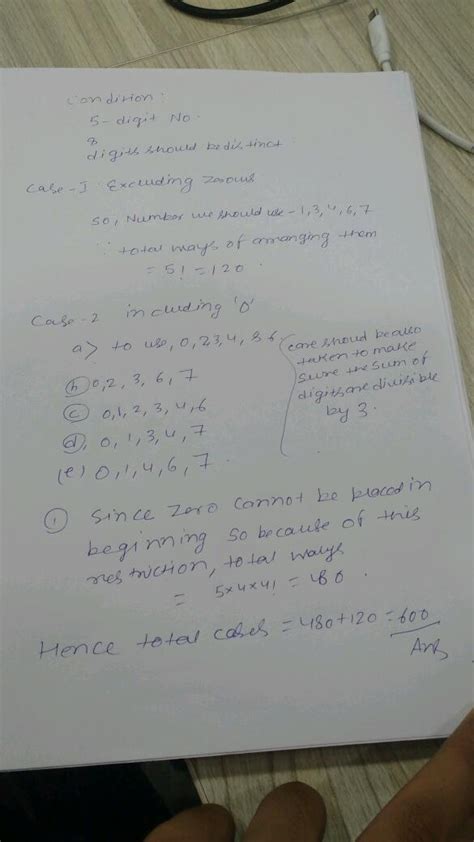 Condition:
5-digit No.
&
digits should be distinct
Case-I Excluding zerous
So, Number we should use - 1,3,4,6,7
∴ total ways of arranging them
= 5! = 120
Case-2 including '0'
a> to use, 0,2,3,4,
(b) 0,2,3,6,7
(c) 0,1,2,3,4,6
(d) 0,1,3,4,7
(e) 0,1,4,6,7.
care should be also
taken to make
sure the sum of
digits are divisible
by 3.
① Since Zero cannot be placed in
beginning so because of this
restriction, total ways
= 5x4x4! = 480.
Hence total cases = 480+120 = 600
Ans